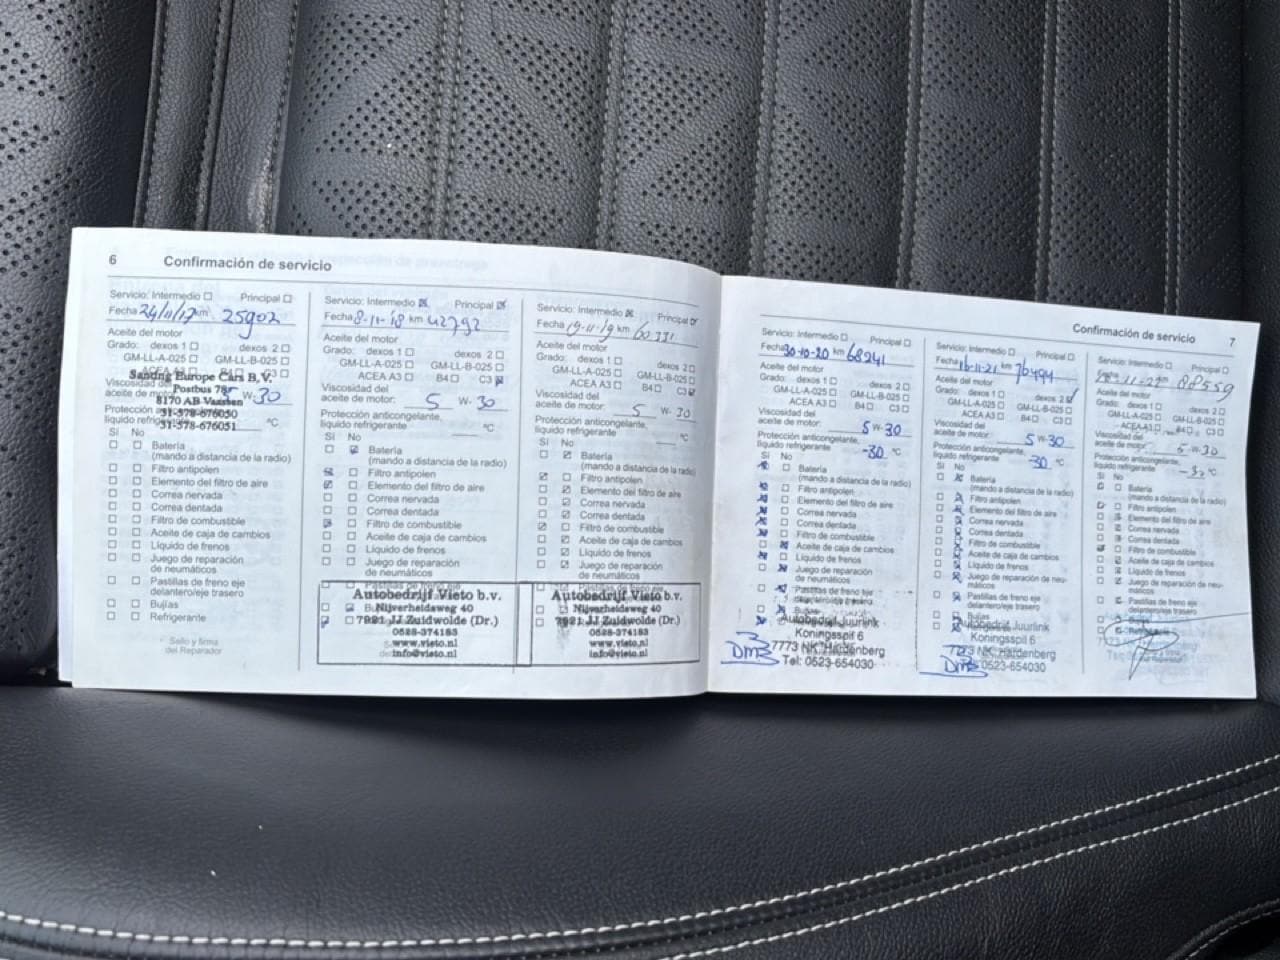 6 Confirmación de servicio
Servicio: Intermedio Principal
Fecha 24/11/17 km 25902
Aceite del motor
Grado: dexos 1 dexos 2
GM-LL-A-025 GM-LL-B-025
ACEA A3 B4 C3
Sanding Europe Cars B.V.
Postbus 78
8170 AB Vaassen
31-578-676050
31-578-676051
Viscosidad del
aceite de motor: 5 W-30
Protección
líquido refrigerante °C
Sí No
Batería
(mando a distancia de la radio)
Filtro antipolen
Elemento del filtro de aire
Correa nervada
Correa dentada
Filtro de combustible
Aceite de caja de cambios
Líquido de frenos
Juego de reparación
de neumáticos
Pastillas de freno eje
delantero/eje trasero
Bujías
Refrigerante
Sello y firma
del Reparador
Servicio: Intermedio Principal
Fecha 8-11-'18 km 42792
Aceite del motor
Grado: dexos 1 dexos 2
GM-LL-A-025 GM-LL-B-025
ACEA A3 B4 C3
Viscosidad del
aceite de motor: 5 W-30
Protección anticongelante,
líquido refrigerante °C
Sí No
Batería
(mando a distancia de la radio)
Filtro antipolen
Elemento del filtro de aire
Correa nervada
Correa dentada
Filtro de combustible
Aceite de caja de cambios
Líquido de frenos
Juego de reparación
de neumáticos
Pastillas de freno eje
Autobedrijf Vieto b.v.
Nijverheidsweg 40
7921 JJ Zuidwolde (Dr.)
0528-374183
www.vieto.nl
info@vieto.nl
Servicio: Intermedio Principal
Fecha 19-11-'19 km 60331
Aceite del motor
Grado: dexos 1 dexos 2
GM-LL-A-025 GM-LL-B-025
ACEA A3 B4 C3
Viscosidad del
aceite de motor: 5 W-30
Protección anticongelante,
líquido refrigerante °C
Sí No
Batería
(mando a distancia de la radio)
Filtro antipolen
Elemento del filtro de aire
Correa nervada
Correa dentada
Filtro de combustible
Aceite de caja de cambios
Líquido de frenos
Juego de reparación
de neumáticos
Pastillas de freno eje
Autobedrijf Vieto b.v.
Nijverheidsweg 40
7921 JJ Zuidwolde (Dr.)
0528-374183
www.vieto.nl
info@vieto.nl
Confirmación de servicio 7
Servicio: Intermedio Principal
Fecha 30-10-20 km 68241
Aceite del motor
Grado: dexos 1 dexos 2
GM-LL-A-025 GM-LL-B-025
ACEA A3 B4 C3
Viscosidad del
aceite de motor: 5 W-30
Protección anticongelante,
líquido refrigerante -30 °C
Sí No
Batería
(mando a distancia de la radio)
Filtro antipolen
Elemento del filtro de aire
Correa nervada
Correa dentada
Filtro de combustible
Aceite de caja de cambios
Líquido de frenos
Juego de reparación
de neumáticos
Pastillas de freno eje
delantero/eje trasero
Bujías
Autobedrijf Juurlink
Koningsspil 6
7773 NK Hardenberg
Tel: 0523-654030
DMB
Servicio: Intermedio Principal
Fecha 16-11-21 km 76494
Aceite del motor
Grado: dexos 1 dexos 2
GM-LL-A-025 GM-LL-B-025
ACEA A3 B4 C3
Viscosidad del
aceite de motor: 5 W-30
Protección anticongelante,
líquido refrigerante -30 °C
Sí No
Batería
(mando a distancia de la radio)
Filtro antipolen
Elemento del filtro de aire
Correa nervada
Correa dentada
Filtro de combustible
Aceite de caja de cambios
Líquido de frenos
Juego de reparación de neu-
máticos
Pastillas de freno eje
delantero/eje trasero
Bujías
Autobedrijf Juurlink
Koningsspil 6
7773 NK Hardenberg
0523-654030
DMB
Servicio: Intermedio Principal
Fecha 11-22 km 88559
Aceite del motor
Grado: dexos 1 dexos 2
GM-LL-A-025 GM-LL-B-025
ACEA A3 B4 C3
Viscosidad del
aceite de motor: 5-W-30
Protección anticongelante,
líquido refrigerante °C
Sí No
Batería
(mando a distancia de la radio)
Filtro antipolen
Elemento del filtro de aire
Correa nervada
Correa dentada
Filtro de combustible
Aceite de caja de cambios
Líquido de frenos
Juego de reparación de neu-
máticos
Pastillas de freno eje
delantero/eje trasero
Bujías
Refrigerante